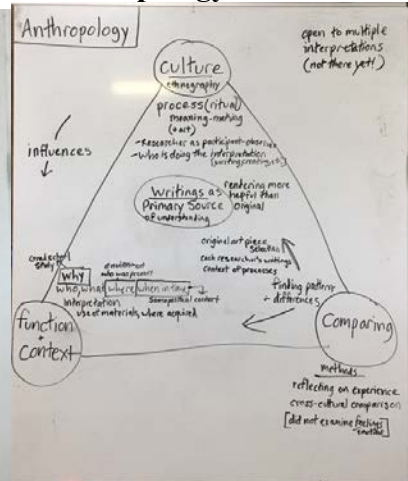 Anthropology
open to multiple
interpretations
(not there yet!)
Culture
ethnography
process (ritual)
meaning-making
(+ art)
- Researcher as participant-observer
- Who is doing the interpretation
(writing, creating, etc)
influences
Writings as
Primary Source
of understanding
rendering more
helpful than
original
original art piece
selection
each researcher's writings
context of processes
finding patterns
+ differences
study
why
environment
who was present
who, what, where, when in time
interpretation
Sociopolitical context
use of materials, where acquired
function
+
Context
Comparing
methods
reflecting on experience
cross-cultural comparison
[did not examine feelings